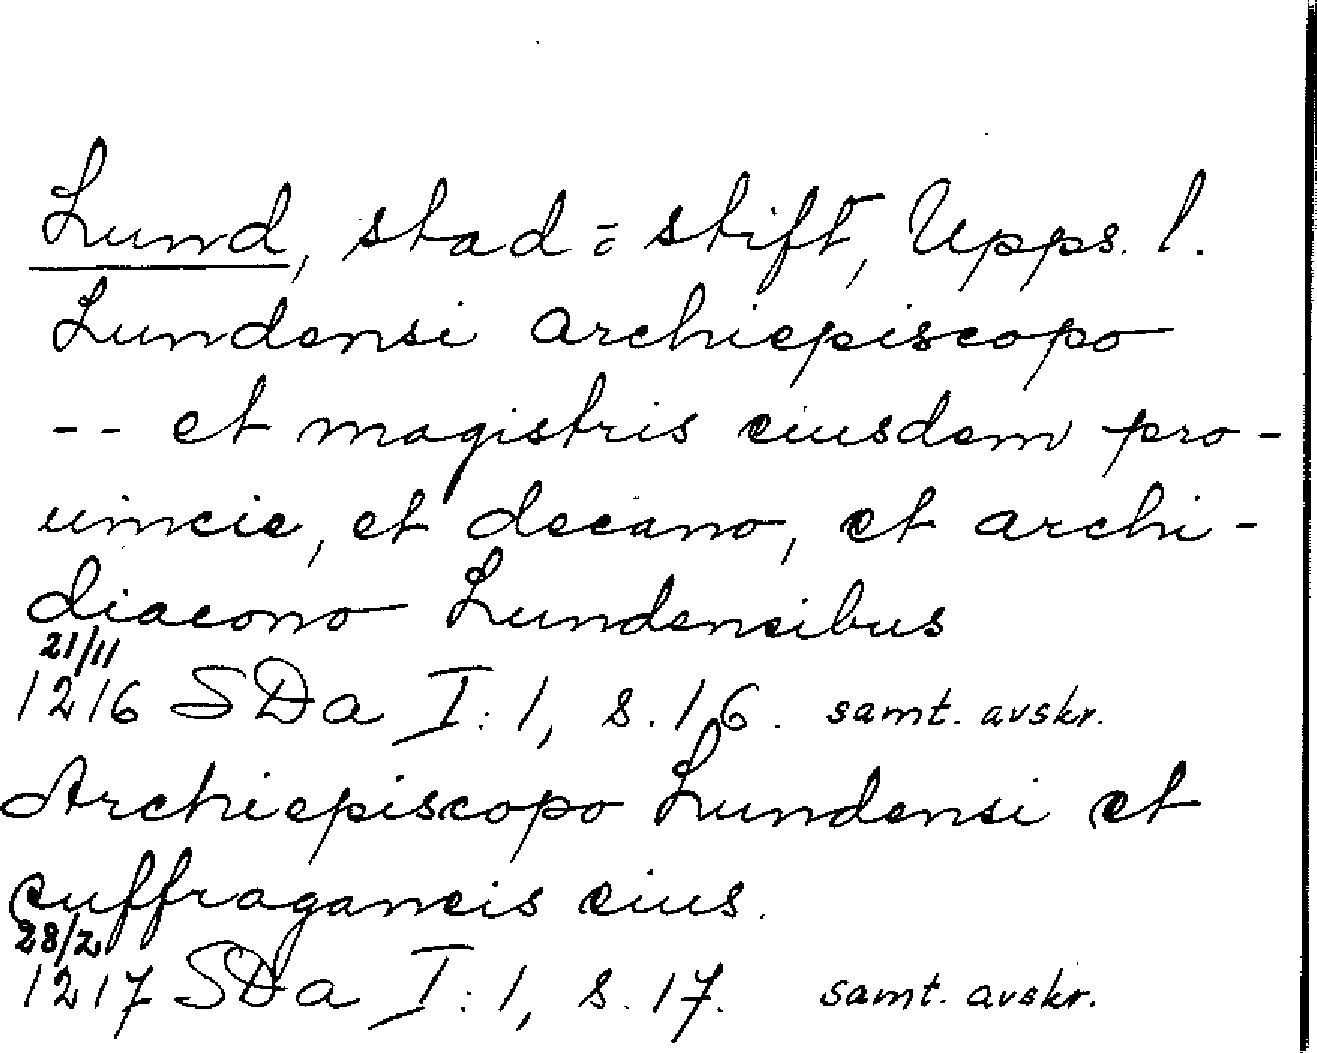 Lund, stad o. stift, Upps. l.
Lundensi archiepiscopo
-- et magistris eiusdem pro-
uincie, et decano, et archi-
diacono Lundensibus
21/11
1216 SDa I:1, s. 16. samt. avskr.
Archiepiscopo Lundensi et
suffraganeis eius.
28/2
1217 SDa I:1, s. 17. samt. avskr.